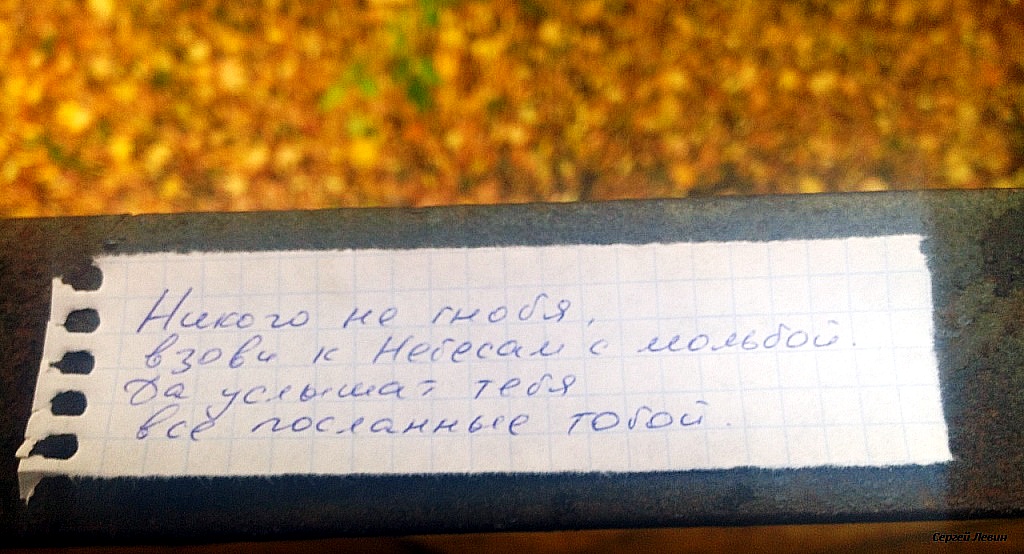 Никого не гнобя,
взови к Небесам с мольбой.
Да услышат тебя
все посланные тобой.
Сергей Левин